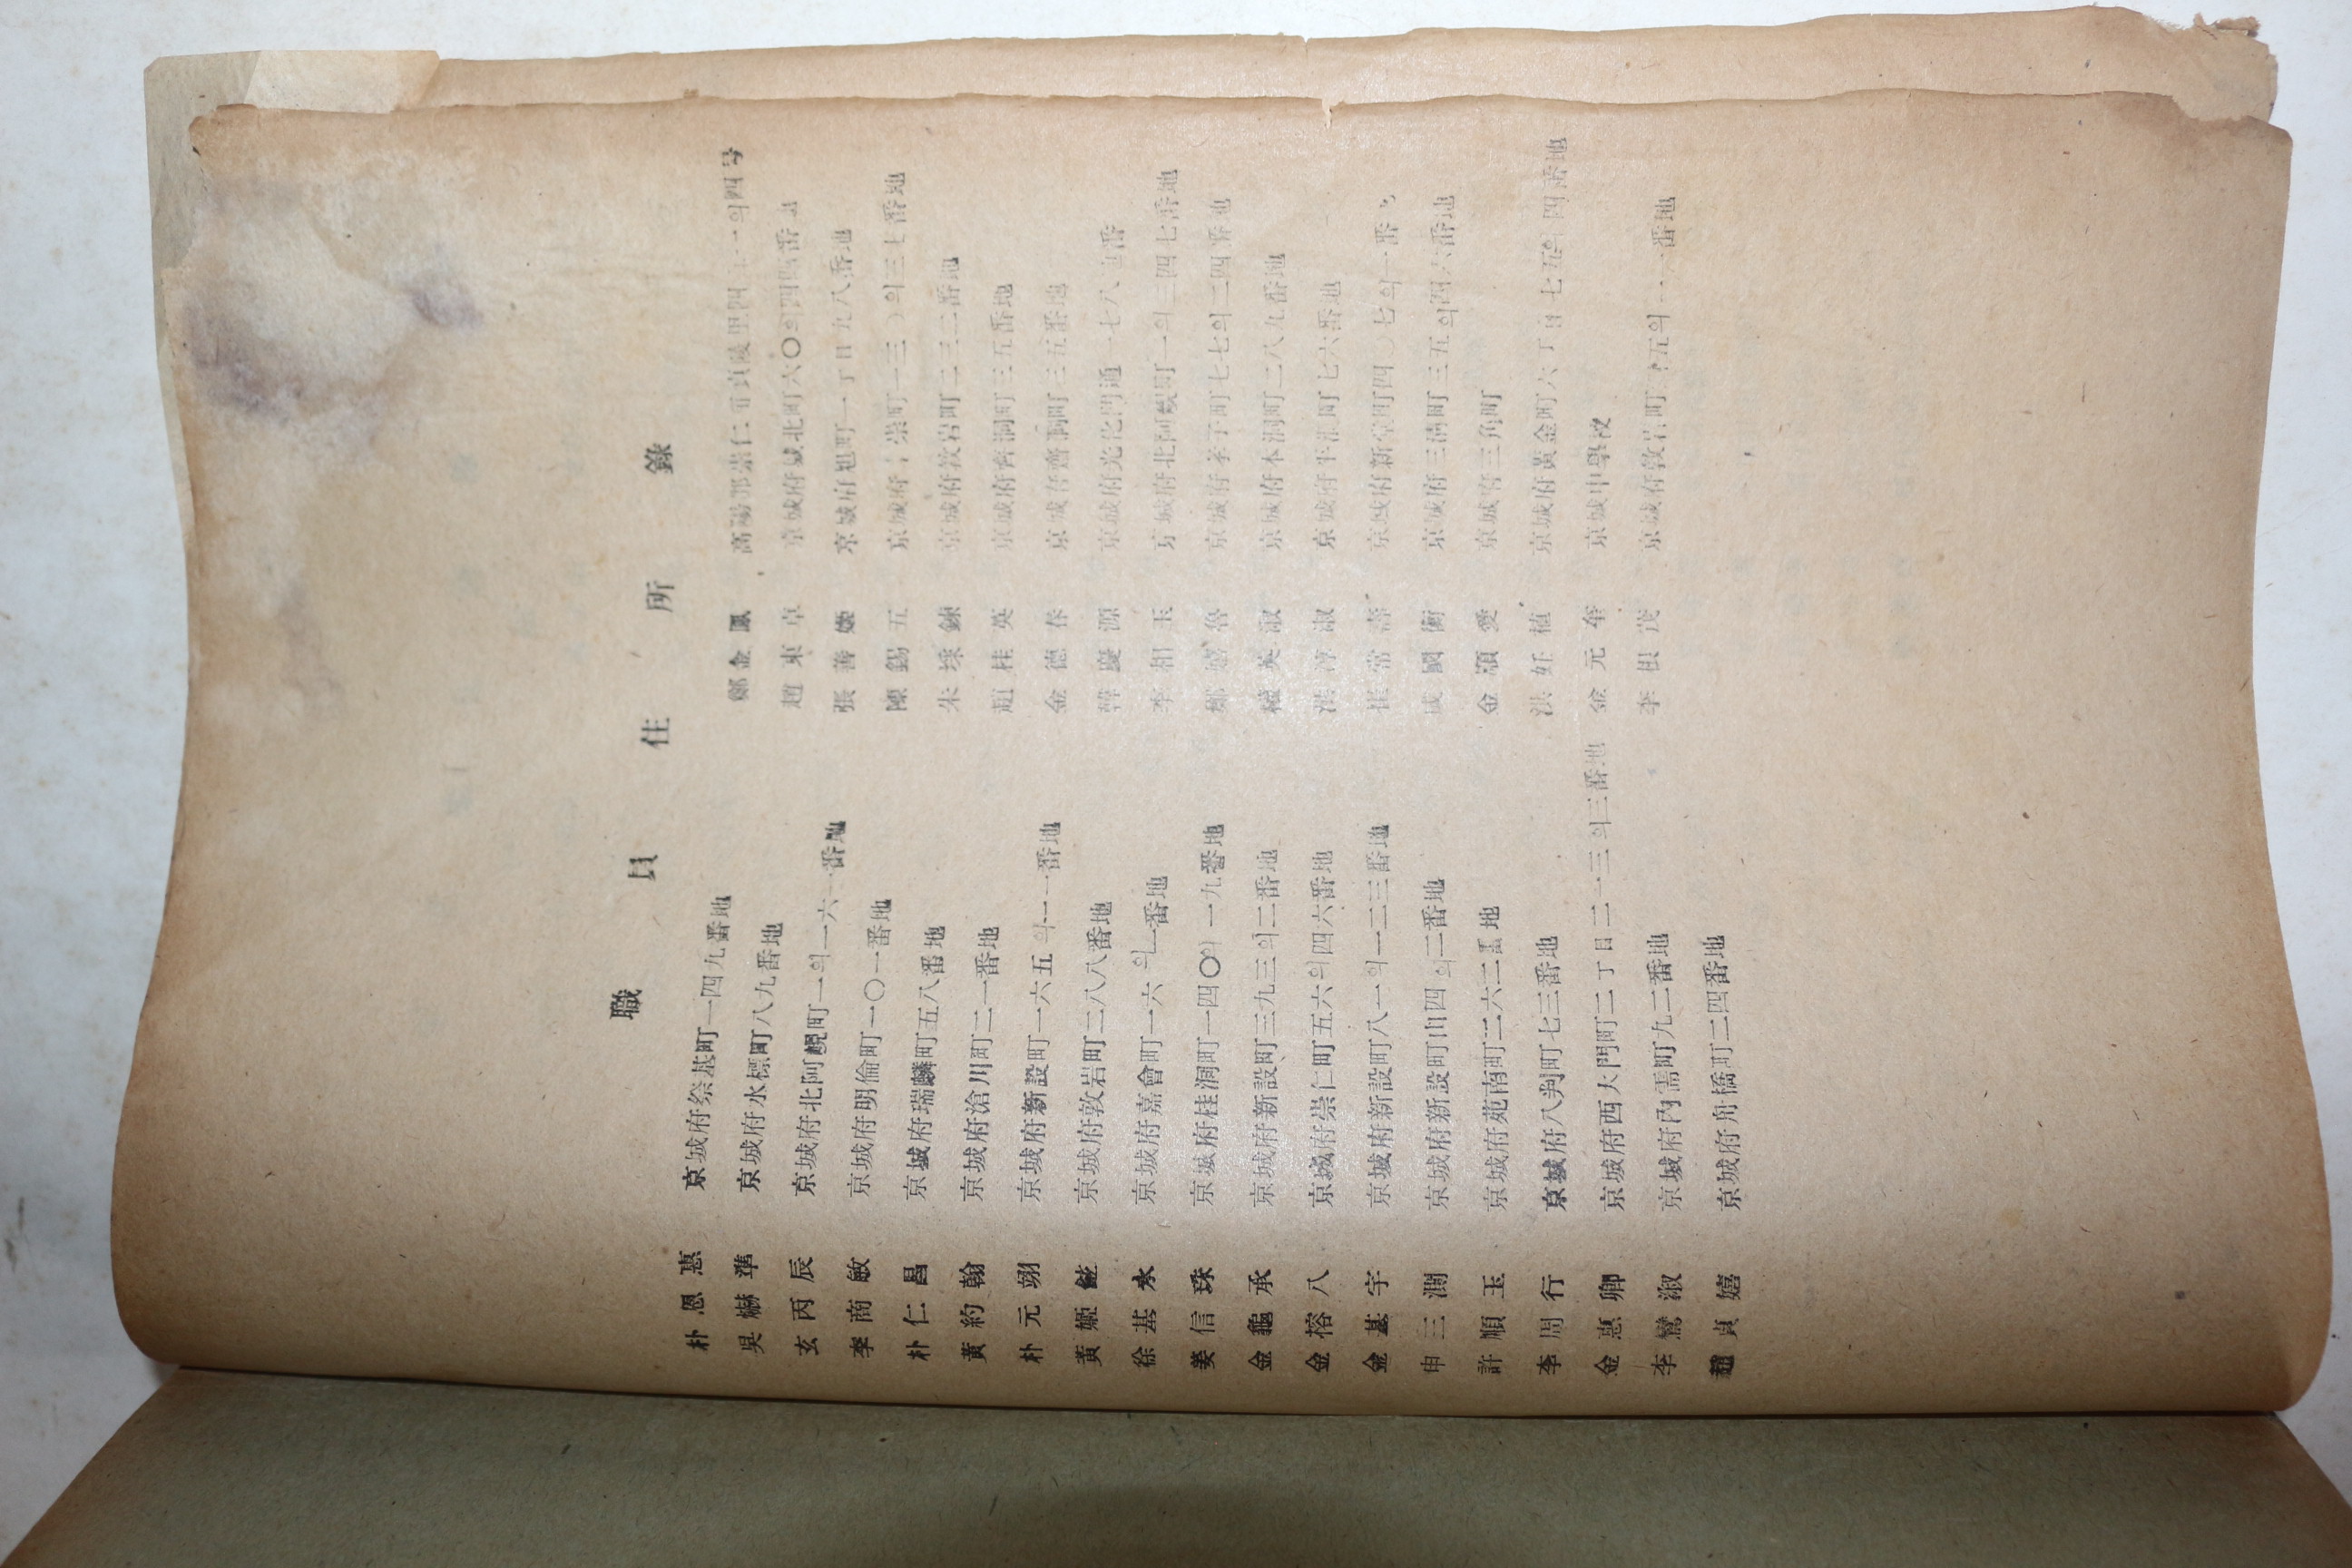 職員住所錄
朴恩惠 京城府祭基町一四九番地
吳 準 京城府水標町八九番地
玄丙辰 京城府北阿峴町一의一六一番地
李商敏 京城府明倫町一〇一番地
朴仁昌 京城府瑞麟町五八番地
黃約翰 京城府滄川町二一番地
朴元翊 京城府新設町一六五의一一番地
黃姬 京城府敦岩町二八八番地
徐基永 京城府嘉會町一六의一番地
姜信珠 京城府桂洞町一四〇의一九番地
金龜承 京城府新設町三九三의二番地
金榕八 京城府崇仁町五六의四六番地
金甚宇 京城府新設町八一의一二三番地
申三澗 京城府新設町山四의二番地
許順玉 京城府苑南町二六二番地
李周行 京城府八判町七三番地
金惠卿 京城府西大門町二丁目二一三의三番地
李鸞淑 京城府內需町九二番地
趙貞嬉 京城府舟橋町二四番地
鄭金鳳 高陽郡崇仁面貞陵里四 一의四号
趙東卓 京城府城北町六〇의四四番地
張善 京城府旭町一丁目九八番地
陳錫五 京城府 崇町一三 의三七番地
朱採鍊 京城府敦岩町二三二番地
趙桂英 京城府齊洞町三五番地
金德春 京城府齊洞町三五番地
韓慶源 京城府光化門通一七八 番
李相玉 京城府北阿峴町一의三四七番地
鄭 魯 京城府孝子町七七의二四番地
英淑 京城府本洞町二八九番地
洪淳淑 京城府 町七六番地
崔常 京城府新堂町四 七의一番
成國衡 京城府三淸町三五의四六番地
金 愛 京城府三角町
洪 植 京城府黃金町六丁目七五의四番地
金元奎 京城中學校
李根茂 京城府敦岩町 五의一一番地